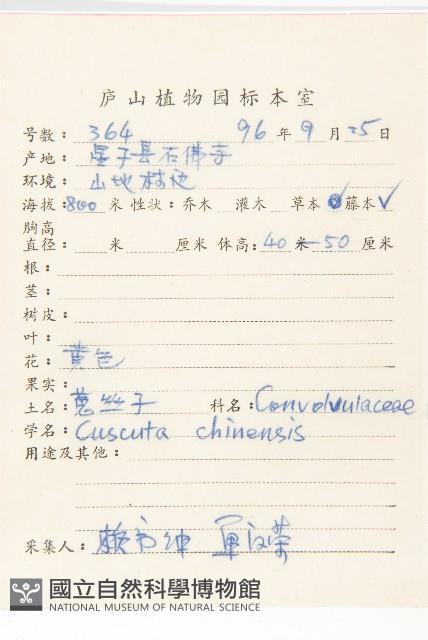 庐山植物园标本室
号数: 364 96 年 9 月 25 日
产地: 星子县石佛寺
环境: 山地林边
海拔: 800 米 性状: 乔木 灌木 草本 藤本 ✓
胸高
直径: 米 厘米 体高: 40 米—50 厘米
根:
茎:
树皮:
叶:
花: 黄色
果实:
土名: 菟丝子 科名: Convolvulaceae
学名: Cuscuta chinensis
用途及其他:
采集人: 赖书绅
國立自然科學博物館
NATIONAL MUSEUM OF NATURAL SCIENCE